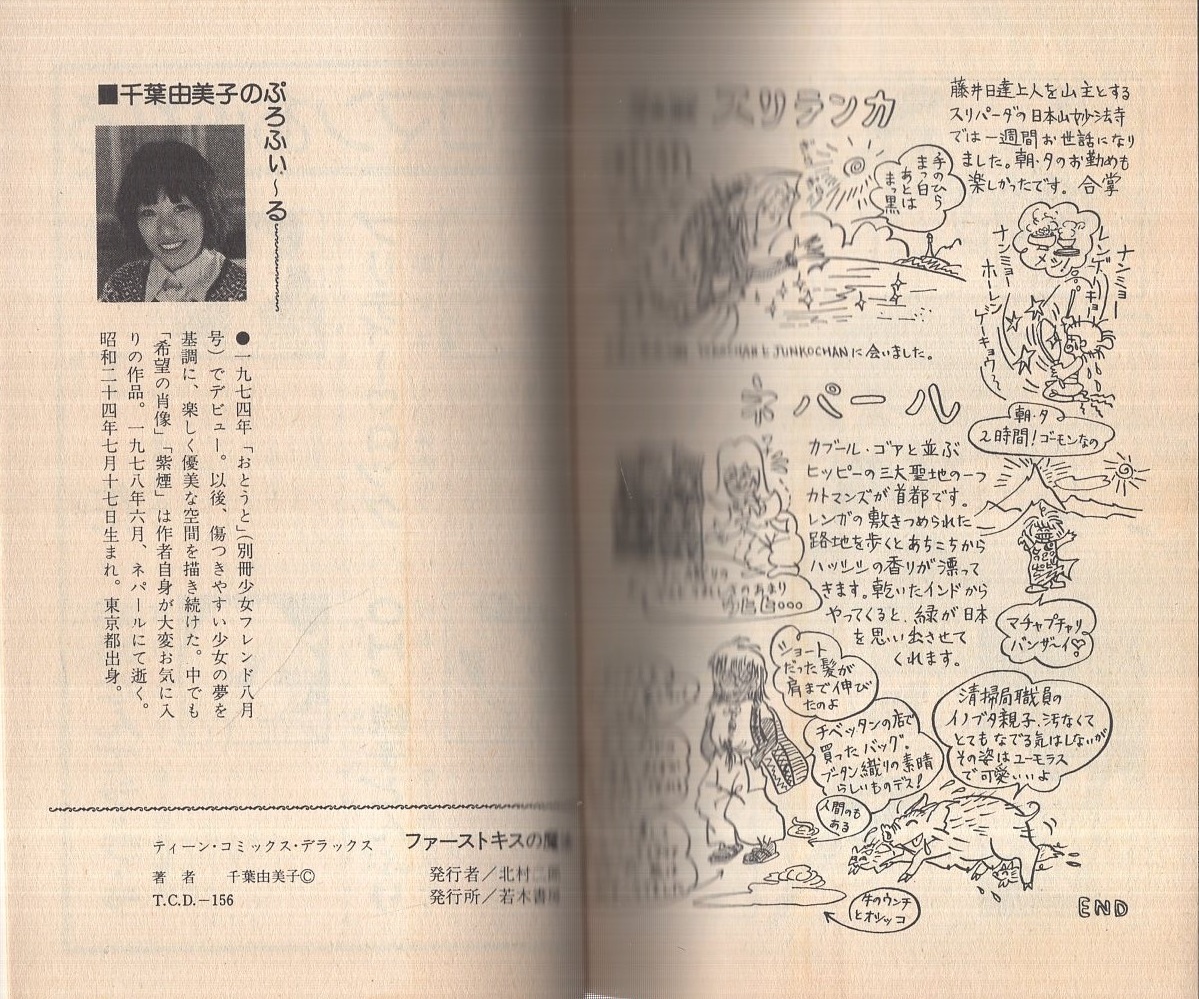 スリランカ
藤井日達上人を山主とする
スリパーダの日本山妙法寺
では一週間お世話になり
ました。朝・夕のお勤めも
楽しかったです。 合掌
手のひら
まっ白
あとは
まっ黒
メシ
ナンミョー
ホーレン
ゲーキョウ〜
ナンミョー
レンゲーキョー
JUNKOCHANに会いました。
朝・夕
2時間!ゴーモンなの
ネパール
カブール・ゴアと並ぶ
ヒッピーの三大聖地の一つ
カトマンズが首都です。
レンガの敷きつめられた
路地を歩くとあちこちから
ハッシシの香りが漂って
きます。乾いたインドから
やってくると、緑が日本
を思い出させて
くれます。
のあまり
マチャプチャリ
バンザーイ♡
ショート
だった髪が
肩まで伸び
たのよ
チベッタンの店で
買ったバッグ。
ブータン織りの素晴
らしいものデス!
清掃局職員の
イノブタ親子、汚なくて
とてもなでる気はしないが
その姿はユーモラス
で可愛いいよ
人間のも
ある
牛のウンチ
とオシッコ
END
■千葉由美子のぷろふぃ〜る
●一九七四年「おとうと」(別冊少女フレンド八月
号)でデビュー。以後、傷つきやすい少女の夢を
基調に、楽しく優美な空間を描き続けた。中でも
「希望の肖像」「紫煙」は作者自身が大変お気に入
りの作品。一九七八年六月、ネパールにて逝く。
昭和二十四年七月十七日生まれ。東京都出身。
ティーン・コミックス・デラックス
著 者 千葉由美子©
T.C.D.−156
ファーストキスの魔
発行者/北村二
発行所/若木書房